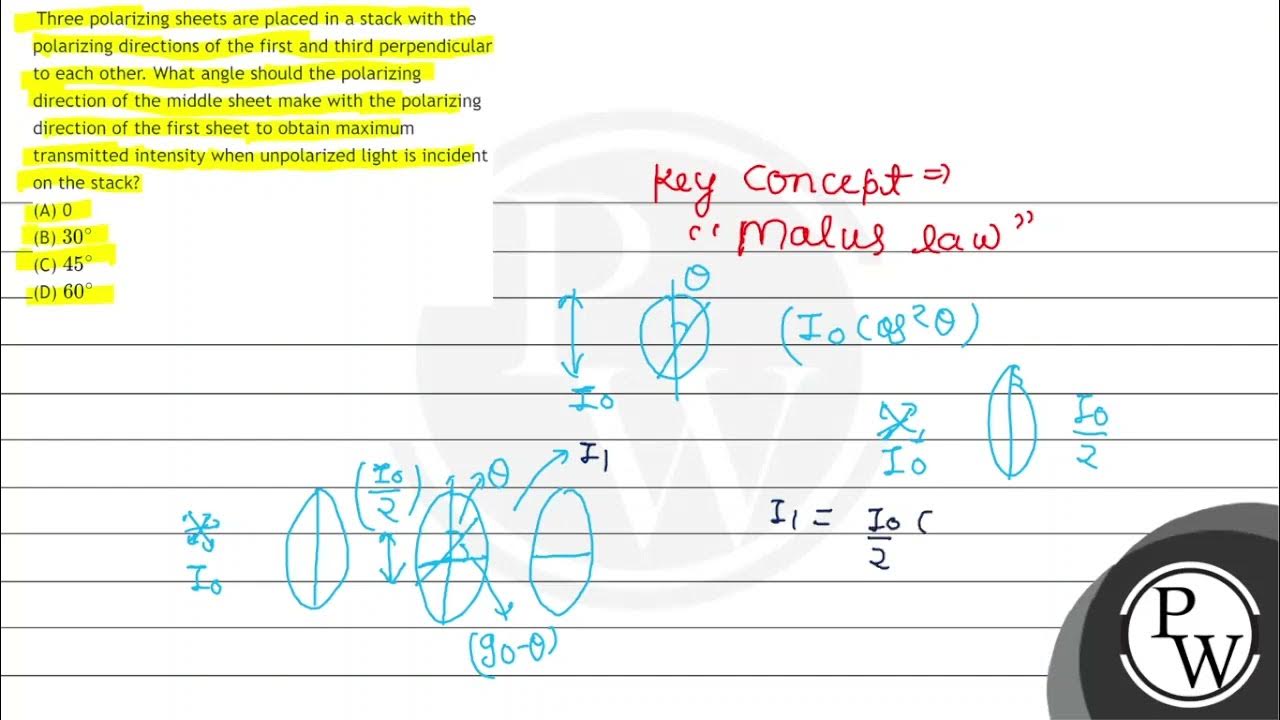 Three polarizing sheets are placed in a stack with the
polarizing directions of the first and third perpendicular
to each other. What angle should the polarizing
direction of the middle sheet make with the polarizing
direction of the first sheet to obtain maximum
transmitted intensity when unpolarized light is incident
on the stack?
(A) 0
(B) 30°
(C) 45°
(D) 60°
Key Concept ⇒
"Malus law"
θ
I₀
(I₀ Cos²θ)
I₀
I₀/2
I₀
(I₀/2)
θ
I₁
(90-θ)
I₁ = I₀/2 (
PW
PW